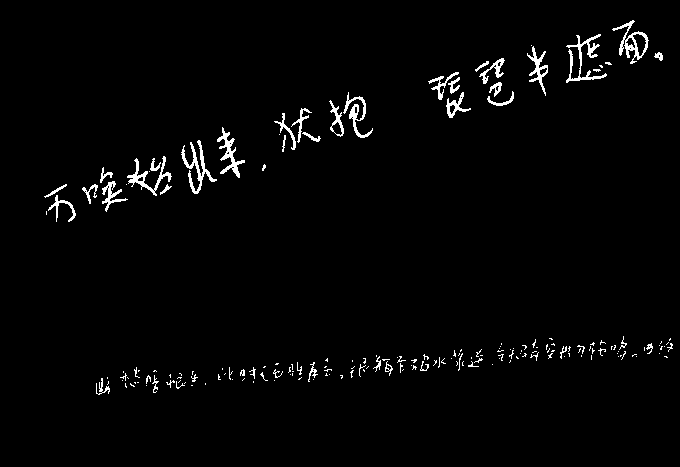 万唤始出来,犹抱 琵琶半遮面。
幽愁暗恨生,此时无声胜有声。银瓶乍破水浆迸,铁骑突出刀枪鸣。曲终